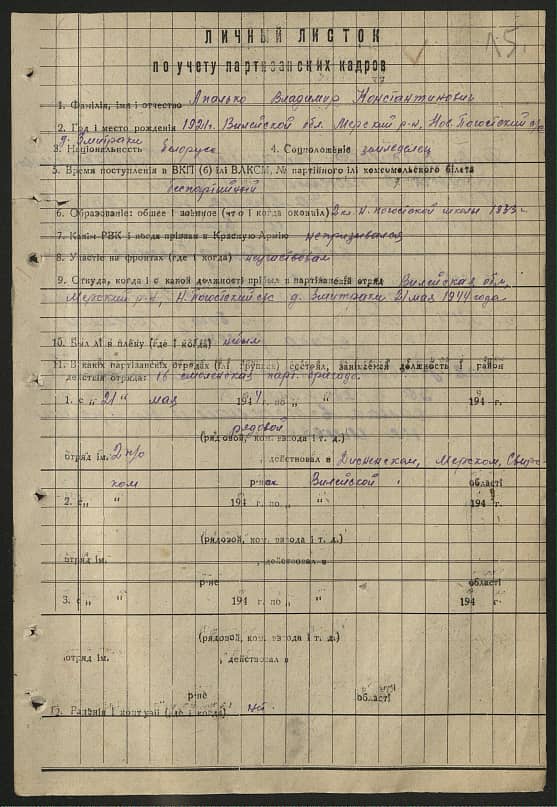 15.
ЛИЧНЫЙ ЛИСТОК
по учету партизанских кадров
1. Фамілія, імя і отчество Апалько Владимир Константинович
2. Год і место рождения 1921г. Вилейской обл. Мерский р-н, Нов. Погостский с/с
д. Змитраки
3. Національность белорусс 4. Соцположеніе земледелец
5. Время поступления в ВКП (б) ілі ВЛКСМ, № партійного ілі комсомольского білета
беспартийный
6. Образованіе: общее і военное (что і когда окончіл) 2 кл. Н. погостской школы 1933 г.
7. Какім РВК і когда прізван в Красную Армію непризывался
8. Участіе на фронтах (где і когда) неучаствовал
9. Откуда, когда і с какой должності прібыл в партізанскій отряд Вилейская обл.,
Мерский р-н, Н. Погостский с/с д. Змитраки 21 мая 1944 года.
10. Был лі в плену (где і когда) небыл
11. В какіх партізанскіх отрядах (ілі группах) состоял, занімаемая должность і район
действия отряда: 16 смоленская парт. бригада.
1. с „ 21 " мая 1944 г. по „ " 194 г.
рядовой
(рядовой, ком. взвода і т. д.)
отряд ім. 2 п/о , действовал в Дисненском, Мерском, Свирс-
ком р-нах Вилейской області
2. с „ " 194 г. по „ " 194 г.
(рядовой, ком. взвода і т. д.)
отряд ім. , действовал в
р-не області
3. с „ " 194 г. по „ " 194 г.
(рядовой, ком. взвода і т. д.)
отряд ім. , действовал в
р-не області
Ранения і контузіі (где і когда) нет